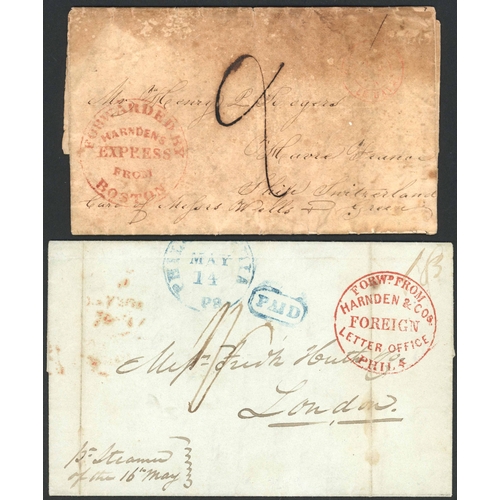 1
FORWARDED BY
HARNDENS
EXPRESS
FROM
BOSTON
Mr Henry L Rogers
Havre France
Ship Switzerland
Care of Messrs Wells & Green
MAY
14
PAID
FORWD. FROM
HARNDEN & COS.
FOREIGN
LETTER OFFICE
PHILA
183
Messrs Fredk Huth & Co
London.
pr Steamer
of the 16th May